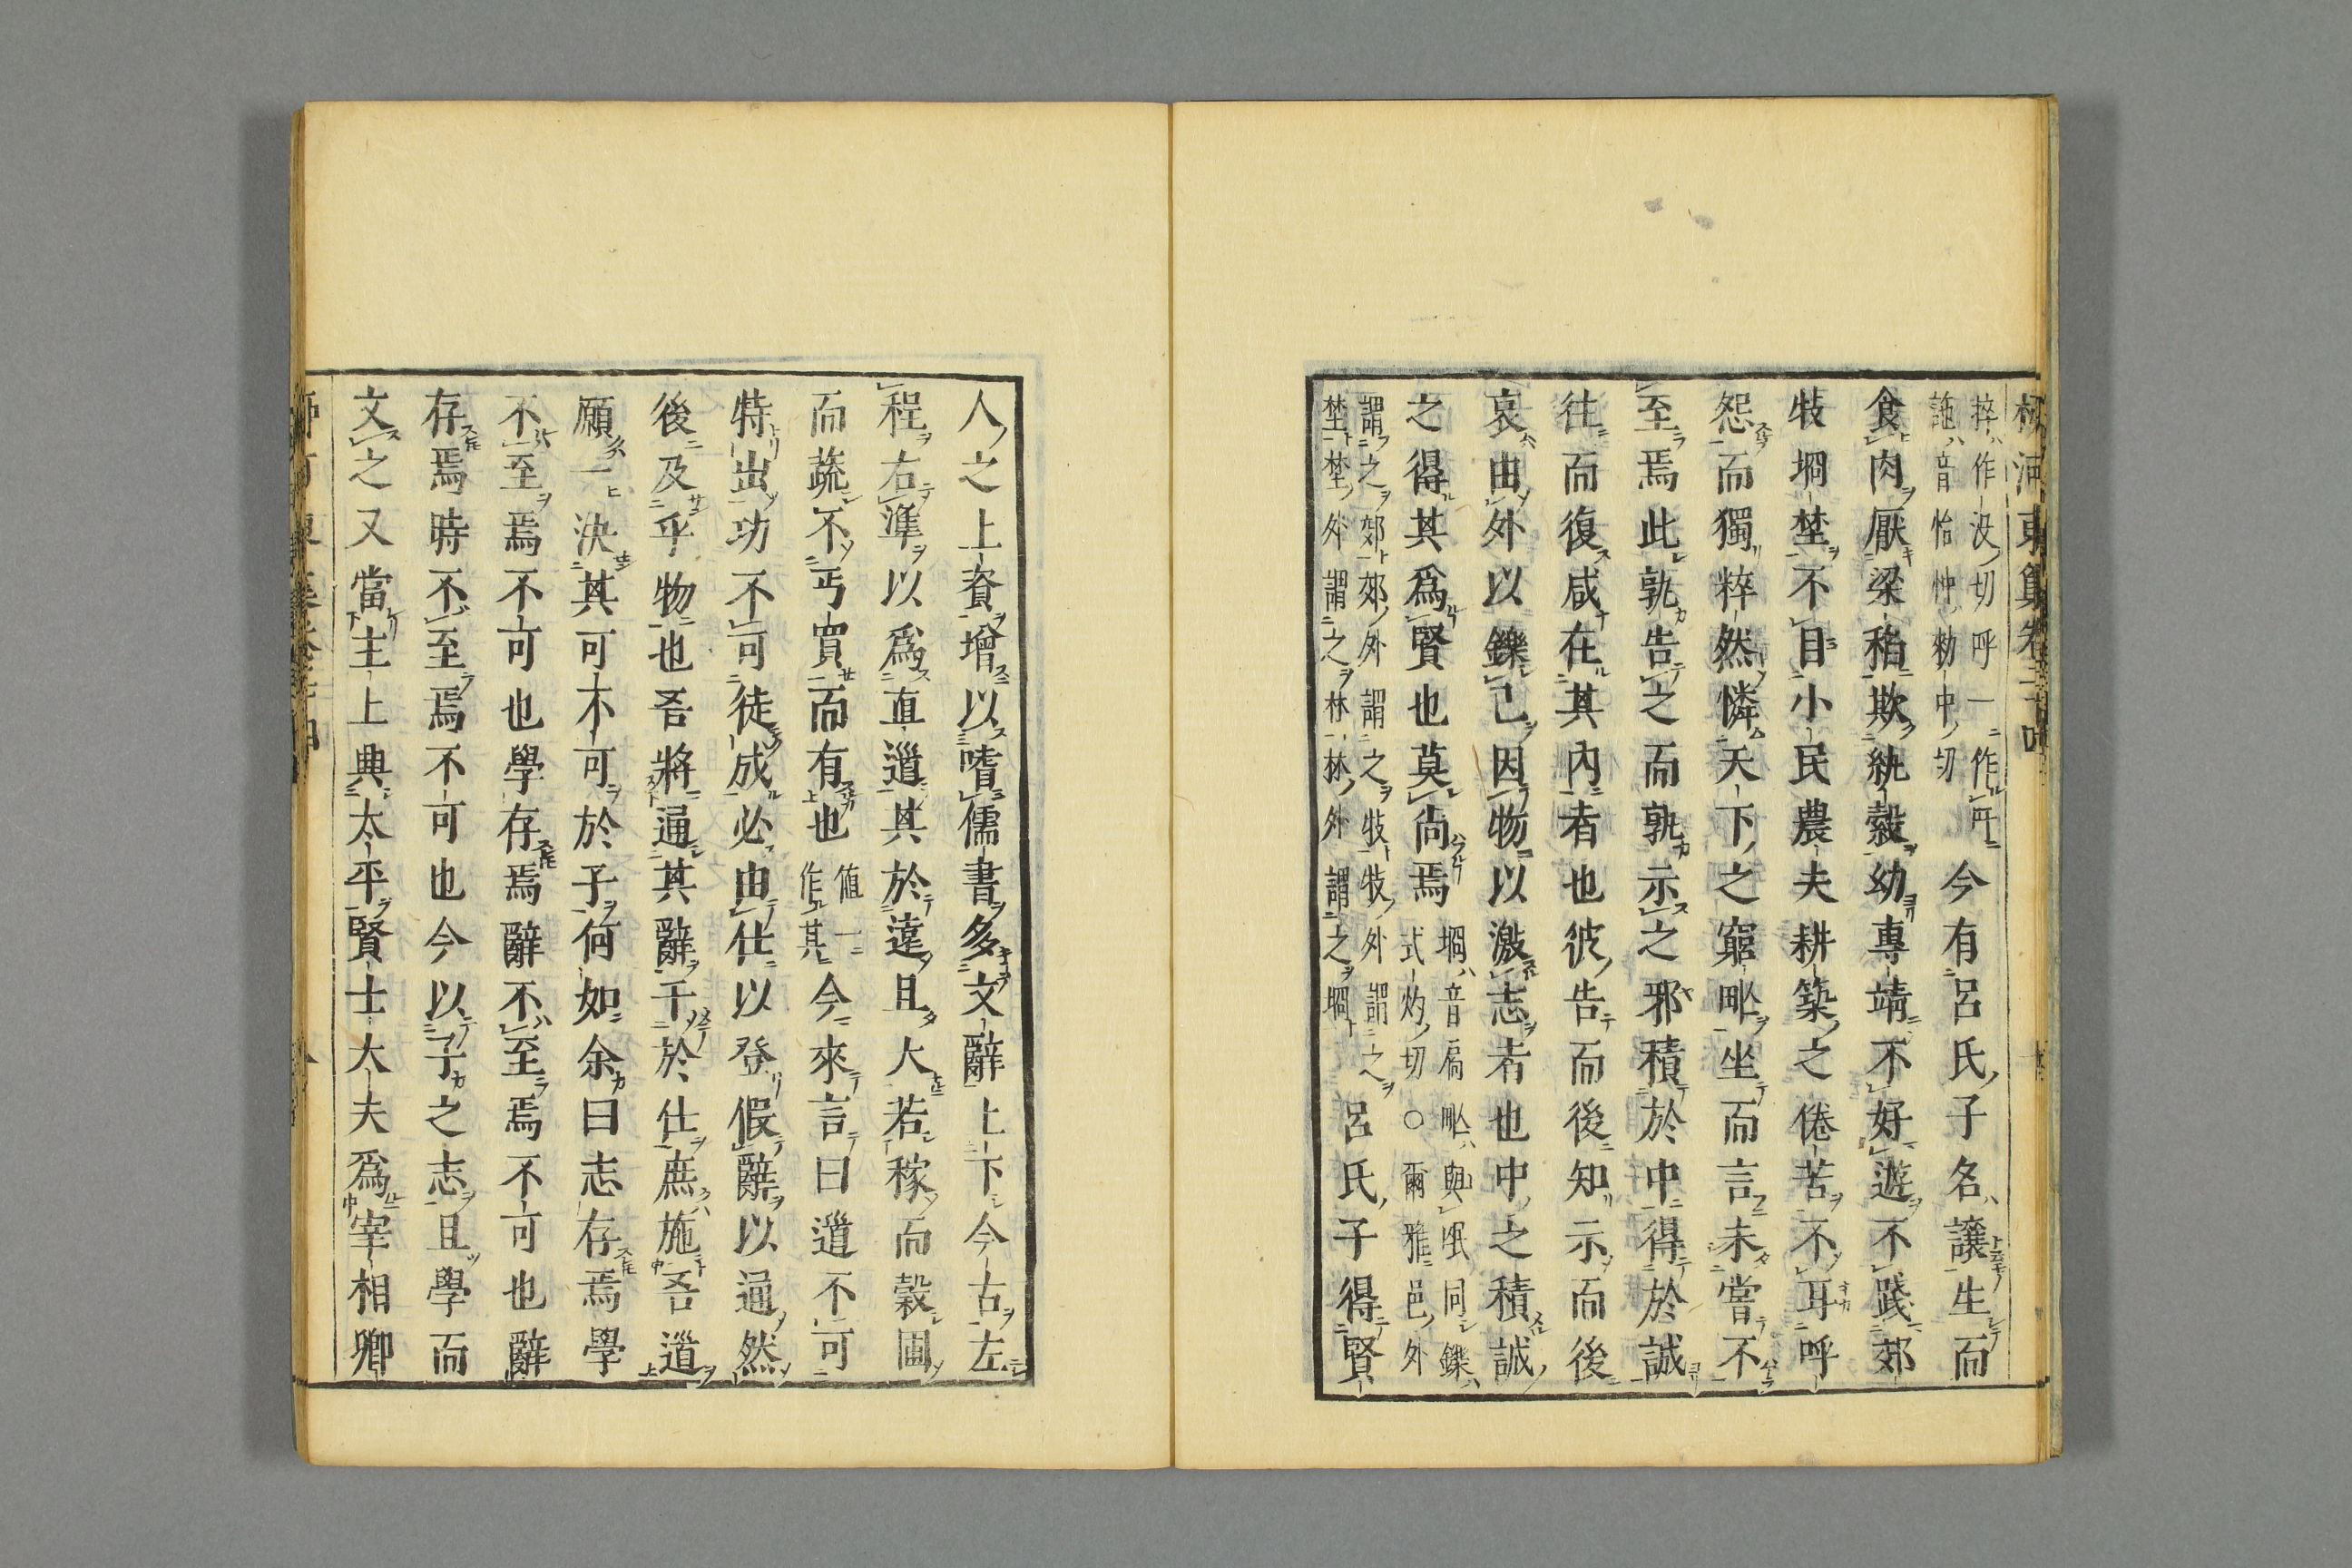 柳河東集卷二十四
捽作没切呼一作吁
訑音怡忡勑中切
今有呂氏子名讓生而
食肉厭梁稻欺紈縠幼專靖不好遊不踐郊
牧埛埜不目小民農夫耕築之倦苦不耳呼
怨而獨粹然憐天下之窮甿坐而言未嘗不
至焉此孰告之而孰示之邪積於中得於誠
往而復咸在其內者也彼告而後知示而後
哀由外以鑠己因物以激志者也中之積誠
之得其爲賢也莫尚焉
埛音扃甿與氓同鑠
式灼切○爾雅邑外
謂之郊郊外謂之牧牧外謂之
埜埜外謂之林林外謂之埛
呂氏子得賢
人之上資增以嗜儒書多文辭上下今古左
程右準以爲直道其於遠且大若稼而穀圃
而蔬不丐買而有也
值一
作其
今來言曰道不可
特出功不可徒成必由仕以登假辭以通然
後及乎物也吾將通其辭干於仕庶施吾道
願一決其可不可於子何如余曰志存焉學
不至焉不可也學存焉辭不至焉不可也辭
存焉時不至焉不可也今以子之志且學而
文之又當主上興太平賢士大夫爲宰相卿